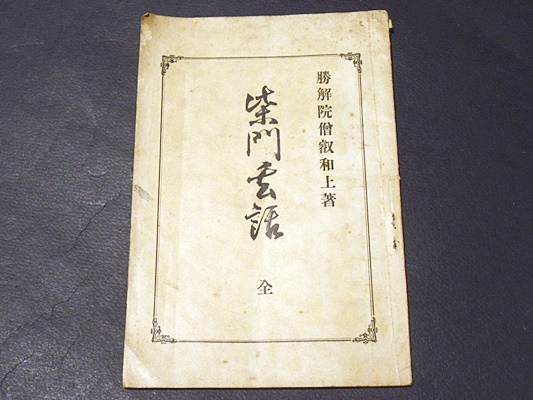 勝解院僧叡和上著
柴門玄話
全